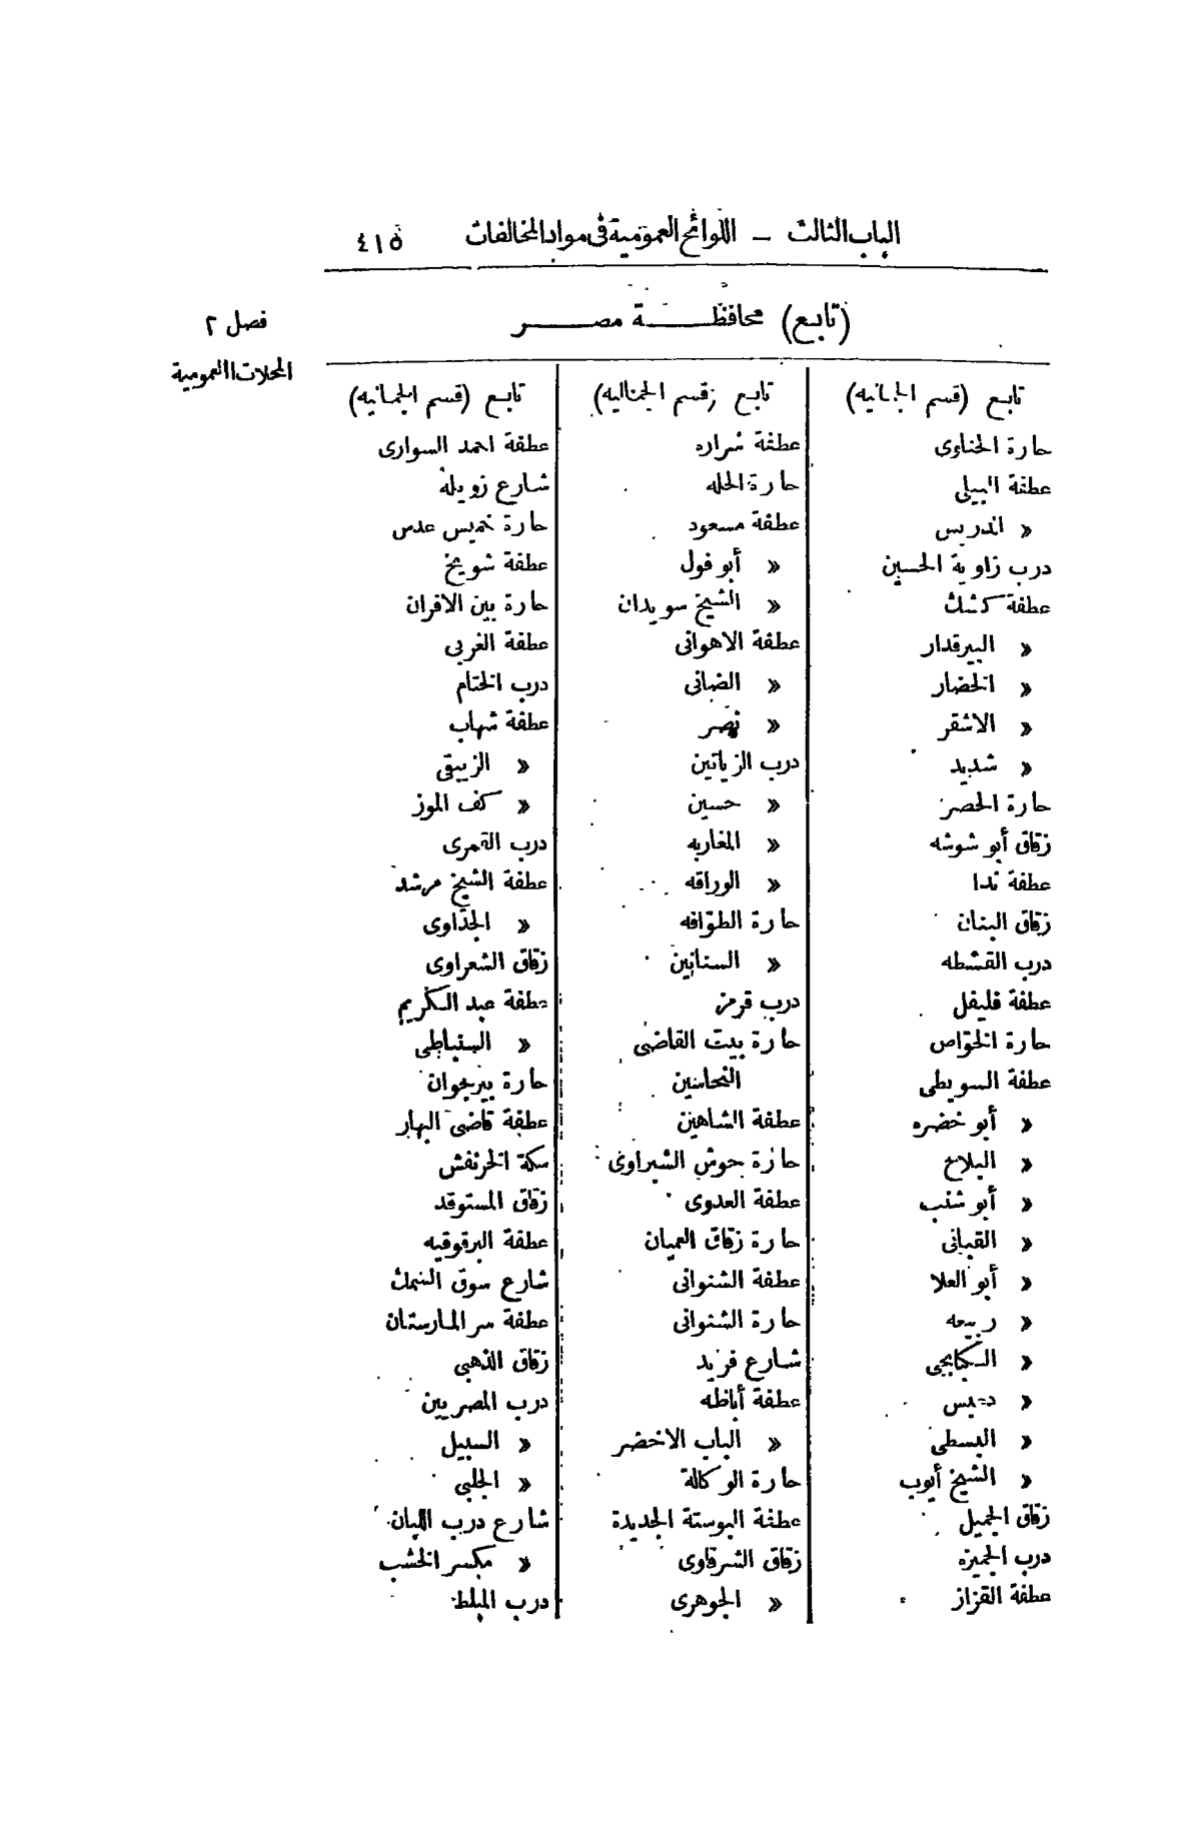 الباب الثالث — اللوائح العمومية فى مواد المخالفات ٤١٥
(تابع) محافظة مصر
فصل ٢
المحلات العمومية
تابع (قسم الجماليه)
حارة الحناوى
عطفة البيلى
» الدريس
درب زاوية الحسين
عطفة كشك
» البيرقدار
» الخضار
» الاشقر
» شديد
حارة الحصر
زقاق أبو شوشه
عطفة ندا
زقاق البنان
درب القشطه
عطفة فليفل
حارة الخواص
عطفة السويطى
» أبو خضره
» البلاح
» أبو شنب
» القبانى
» أبو العلا
» ربيعه
» الكبابجى
» دعبس
» البسطى
» الشيخ أيوب
زقاق الجميل
درب الجميزه
عطفة القزاز
تابع (قسم الجماليه)
عطفة شراره
حارة الحله
عطفة مسعود
» أبو فول
» الشيخ سويدان
عطفة الاهوانى
» الضانى
» نصر
درب الزياتين
» حسين
» المغاربه
» الوراقه
حارة الطوافه
» السنانين
درب قرمز
حارة بيت القاضى
النحاسين
عطفة الشاهين
حارة حوش الشبراوى
عطفة العدوى
حارة زقاق العميان
عطفة الشنوانى
حارة الشنوانى
شارع فريد
عطفة أباظه
» الباب الاخضر
حارة الوكالة
عطفة البوستة الجديدة
زقاق الشرقاوى
» الجوهرى
تابع (قسم الجماليه)
عطفة احمد السوارى
شارع زويلة
حارة خميس عدس
عطفة شويخ
حارة بين الافران
عطفة الغربى
درب الختام
عطفة شهاب
» الزيبقى
» كف الموز
درب القمرى
عطفة الشيخ مرشد
» الجداوى
زقاق الشعراوى
عطفة عبد الكريم
» السنباطى
حارة بيرجوان
عطفة قاضى البهار
سكة الخرنفش
زقاق المستوقد
عطفة البرقوقيه
شارع سوق السمك
عطفة سر المارستان
زقاق الذهبى
درب المصريين
» السبيل
» الجلبى
شارع درب اللبان
» مكسر الخشب
درب المبلط